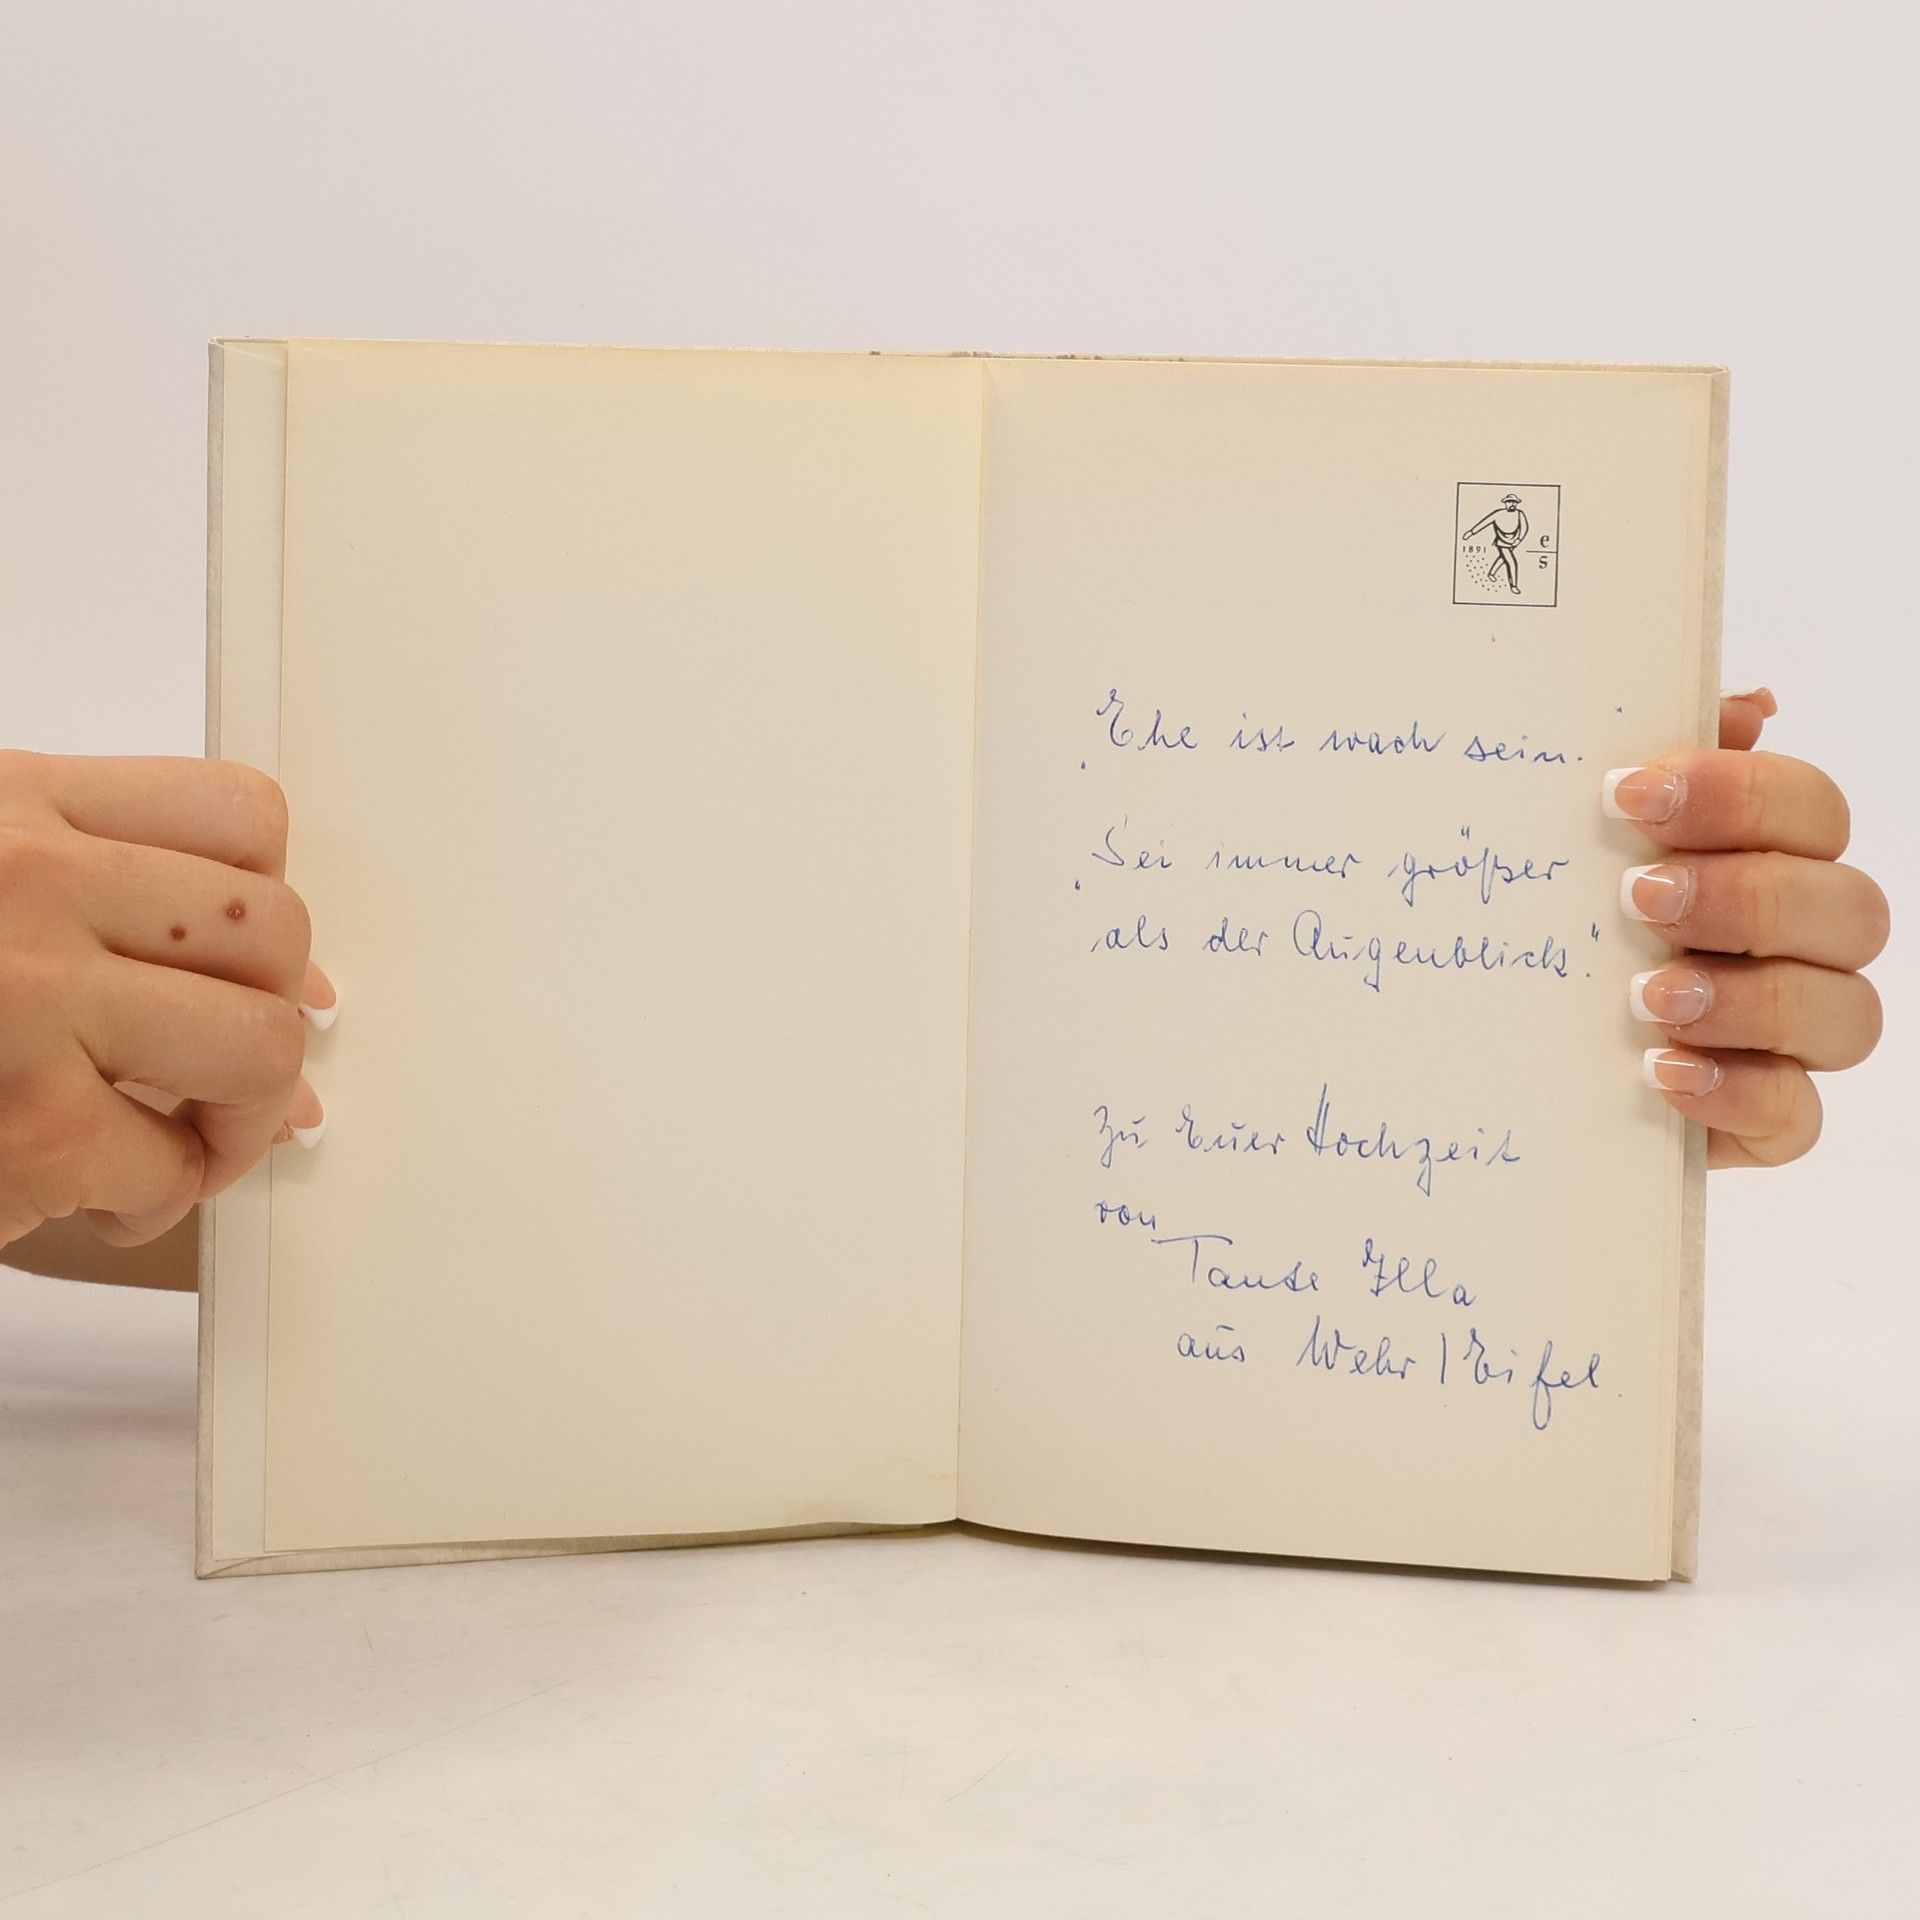 1891
e
s
„Ehe ist wach sein."
„Sei immer größer
als der Augenblick."
Zu Euer Hochzeit
von
Tante Illa
aus Wehr / Eifel.